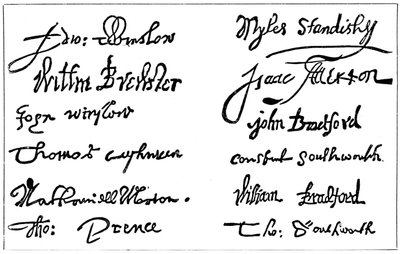 Edw: Winslow
Willm Brewster
John winslow
Thomas cushman
Nathaniell Morton.
Tho: Prence
Myles Standish
Isaac Allerton
john Bradford
constant southworth
william Bradford
Tho: Southworth